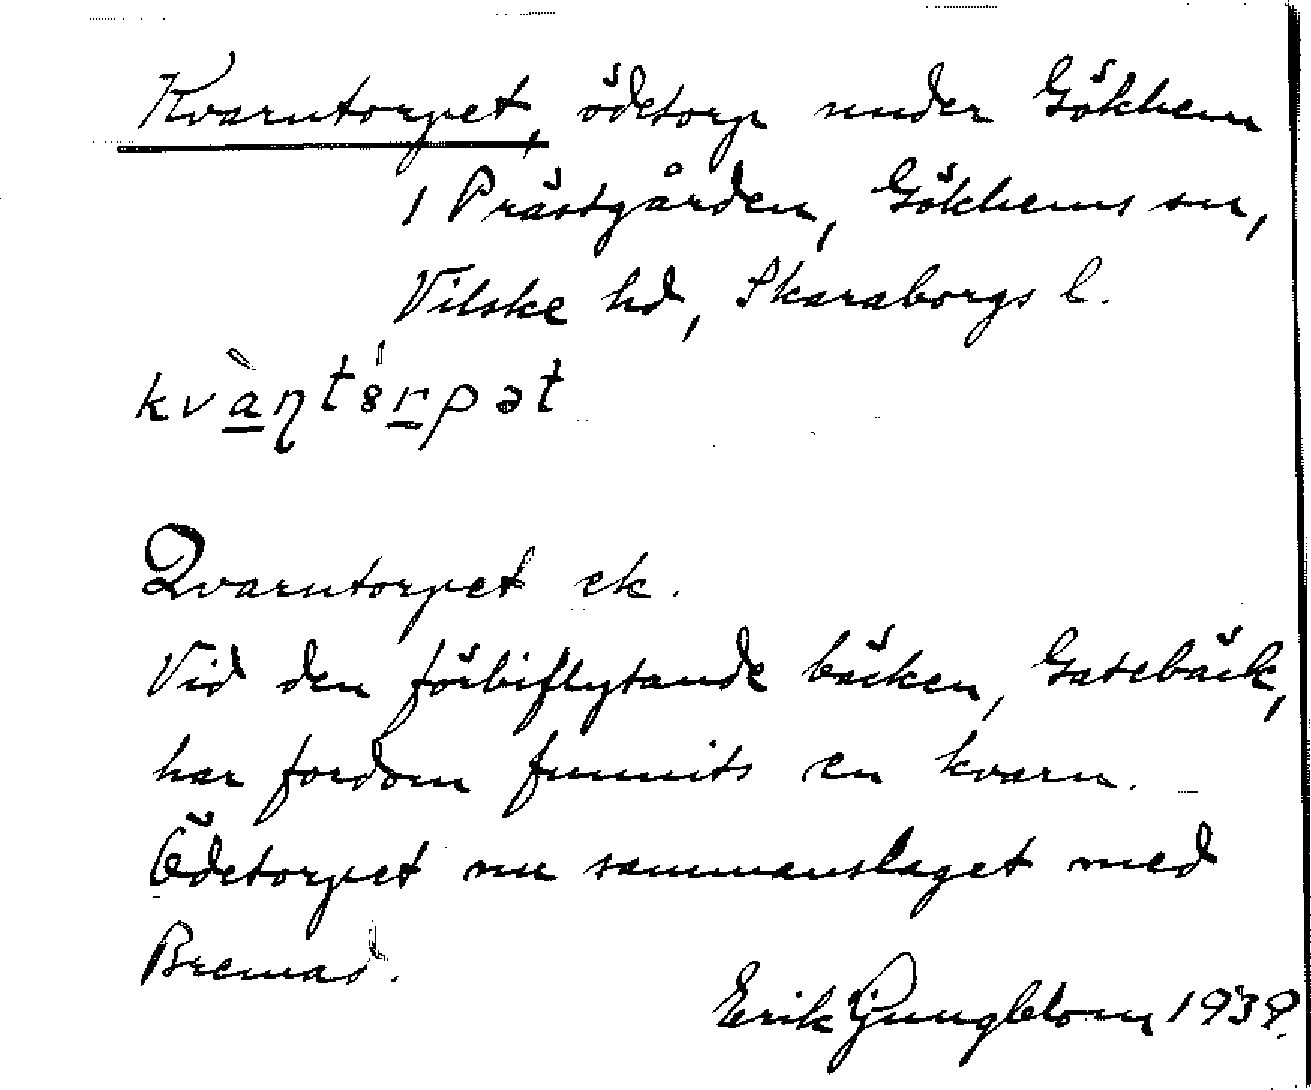 Kvarntorpet, ödetorp under Gökhem
1 Prästgården, Gökhems sn,
Vilske hd, Skaraborgs l.
kvàṇtórpət
Qvarntorpet ek.
Vid den förbiflytande bäcken, Gatebäck,
har fordom funnits en kvarn. —
Ödetorpet nu sammanslaget med
Bremad.
Erik Ljungblom 1939.